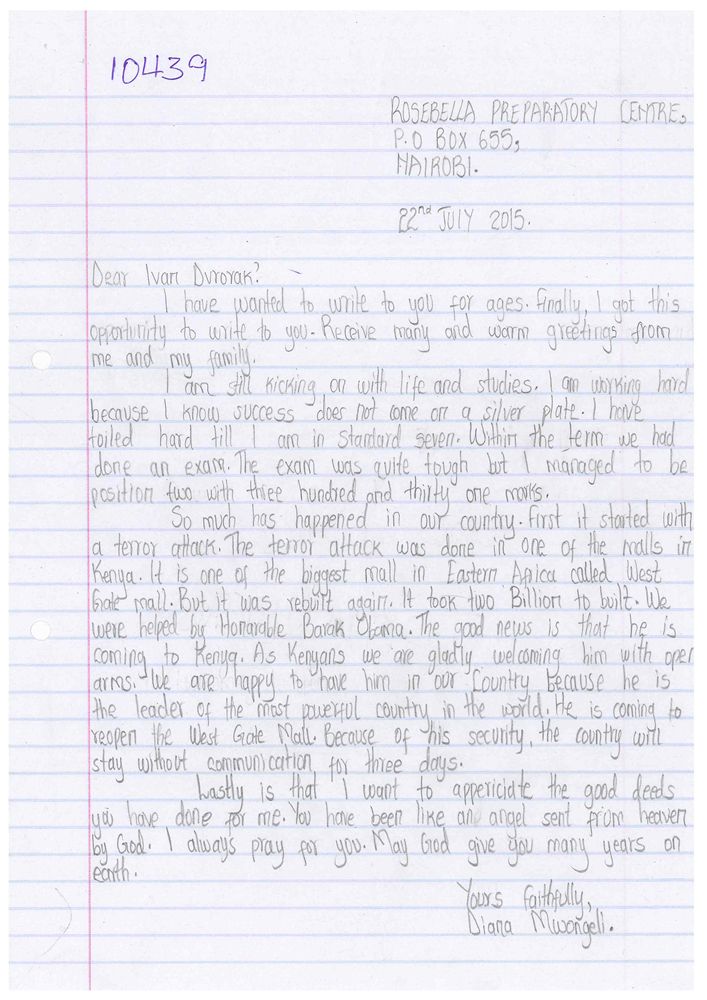 10439
ROSEBELLA PREPARATORY CENTRE,
P.O BOX 655,
NAIROBI.
22nd JULY 2015.
Dear Ivan Dvrovak?
I have wanted to write to you for ages. Finally, I got this
opportunity to write to you. Receive many and warm greetings from
me and my family.
I am still kicking on with life and studies. I am working hard
because I know success does not come on a silver plate. I have
toiled hard till I am in standard seven. Within the term we had
done an exam. The exam was quite tough but I managed to be
position two with three hundred and thirty one marks.
So much has happened in our country. First it started with
a terror attack. The terror attack was done in one of the malls in
Kenya. It is one of the biggest mall in Eastern Africa called West
Gate mall. But it was rebuilt again. It took two Billion to built. We
were helped by Honarable Barak Obama. The good news is that he is
coming to Kenya. As Kenyans we are gladly welcoming him with open
arms. We are happy to have him in our Country because he is
the leader of the most powerful country in the world. He is coming to
reopen the West Gate Mall. Because of his security, the country will
stay without communication for three days.
Lastly is that I want to appericiate the good deeds
you have done for me. You have been like an angel sent from heaven
by God. I always pray for you. May God give you many years on
earth.
Yours faithfully,
Diana Mwongeli.